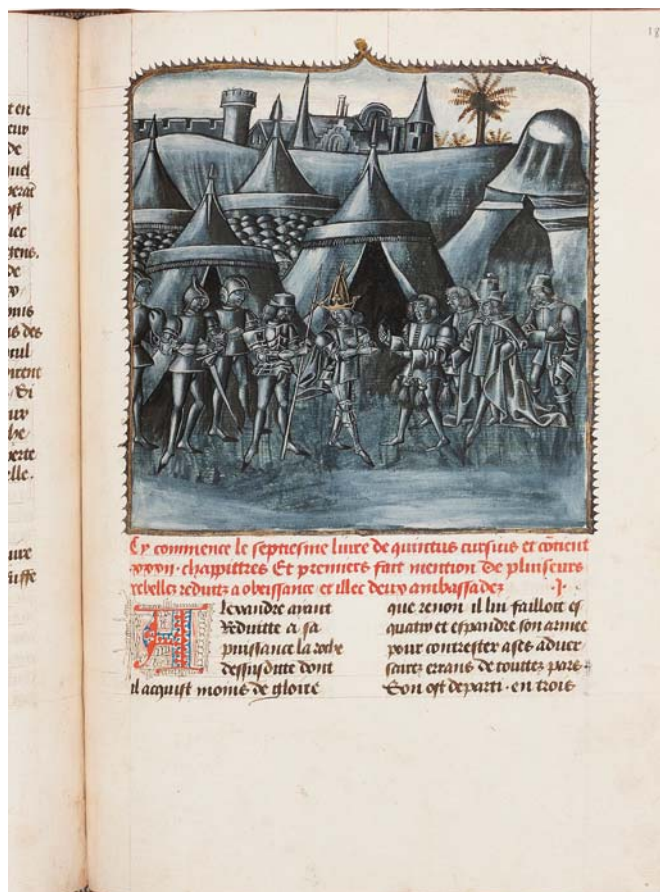 t en
eur
de
uel
ost
uec
gens.
de
nis
is des
tul
urent
Si
he
perte
elle.
18
Cy commence le septiesme livre de quintus cursius et cōtient
chappittres Et premiers fait mention de pluiseurs
rebellez reduitz a obeissance et illec deux ambassadez .j.
Alexandre ayant
Reduitte a sa
puissance la roche
dessusditte dont
il acquist moins de gloire
que renon il lui failloit es
et espandre son armee
pour contrester a ses adver
saires errans de touttez pars.
Son ost departi . en trois